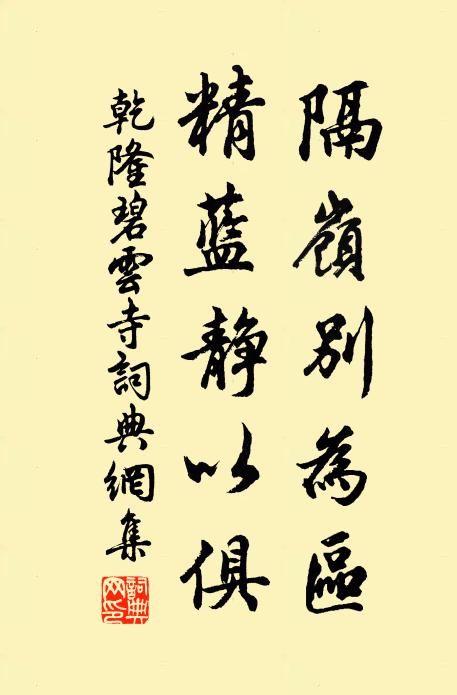 隔嶺別為區
精藍静以俱
乾隆碧雲寺詞典網集
詞典網印